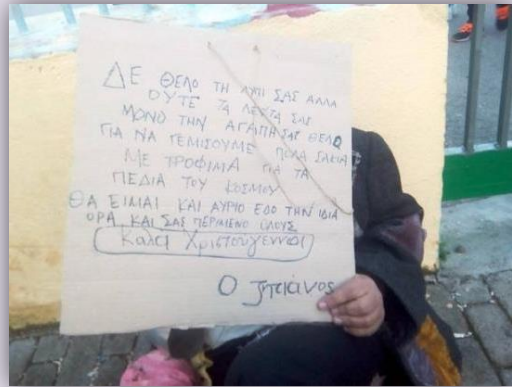 ΔΕ ΘΕΛΟ ΤΗ ΛΥΠΙ ΣΑΣ ΑΛΛΑ
ΟΥΤΕ ΤΑ ΛΕΥΤΑ ΣΑΣ
ΜΟΝΟ ΤΗΝ ΑΓΑΠΗ ΣΑΣ ΘΕΛΟ
ΓΙΑ ΝΑ ΓΕΜΙΣΟΥΜΕ ΠΟΛΑ ΣΑΚΙΑ
ΜΕ ΤΡΟΦΙΜΑ ΓΙΑ ΤΑ
ΠΕΔΙΑ ΤΟΥ ΚΟΣΜΟΥ
ΘΑ ΕΙΜΑΙ ΚΑΙ ΑΥΡΙΟ ΕΔΟ ΤΗΝ ΙΔΙΑ
ΟΡΑ ΚΑΙ ΣΑΣ ΠΕΡΙΜΕΝΟ ΟΛΟΥΣ
Καλά Χριστούγεννα
Ο ζητιάνος